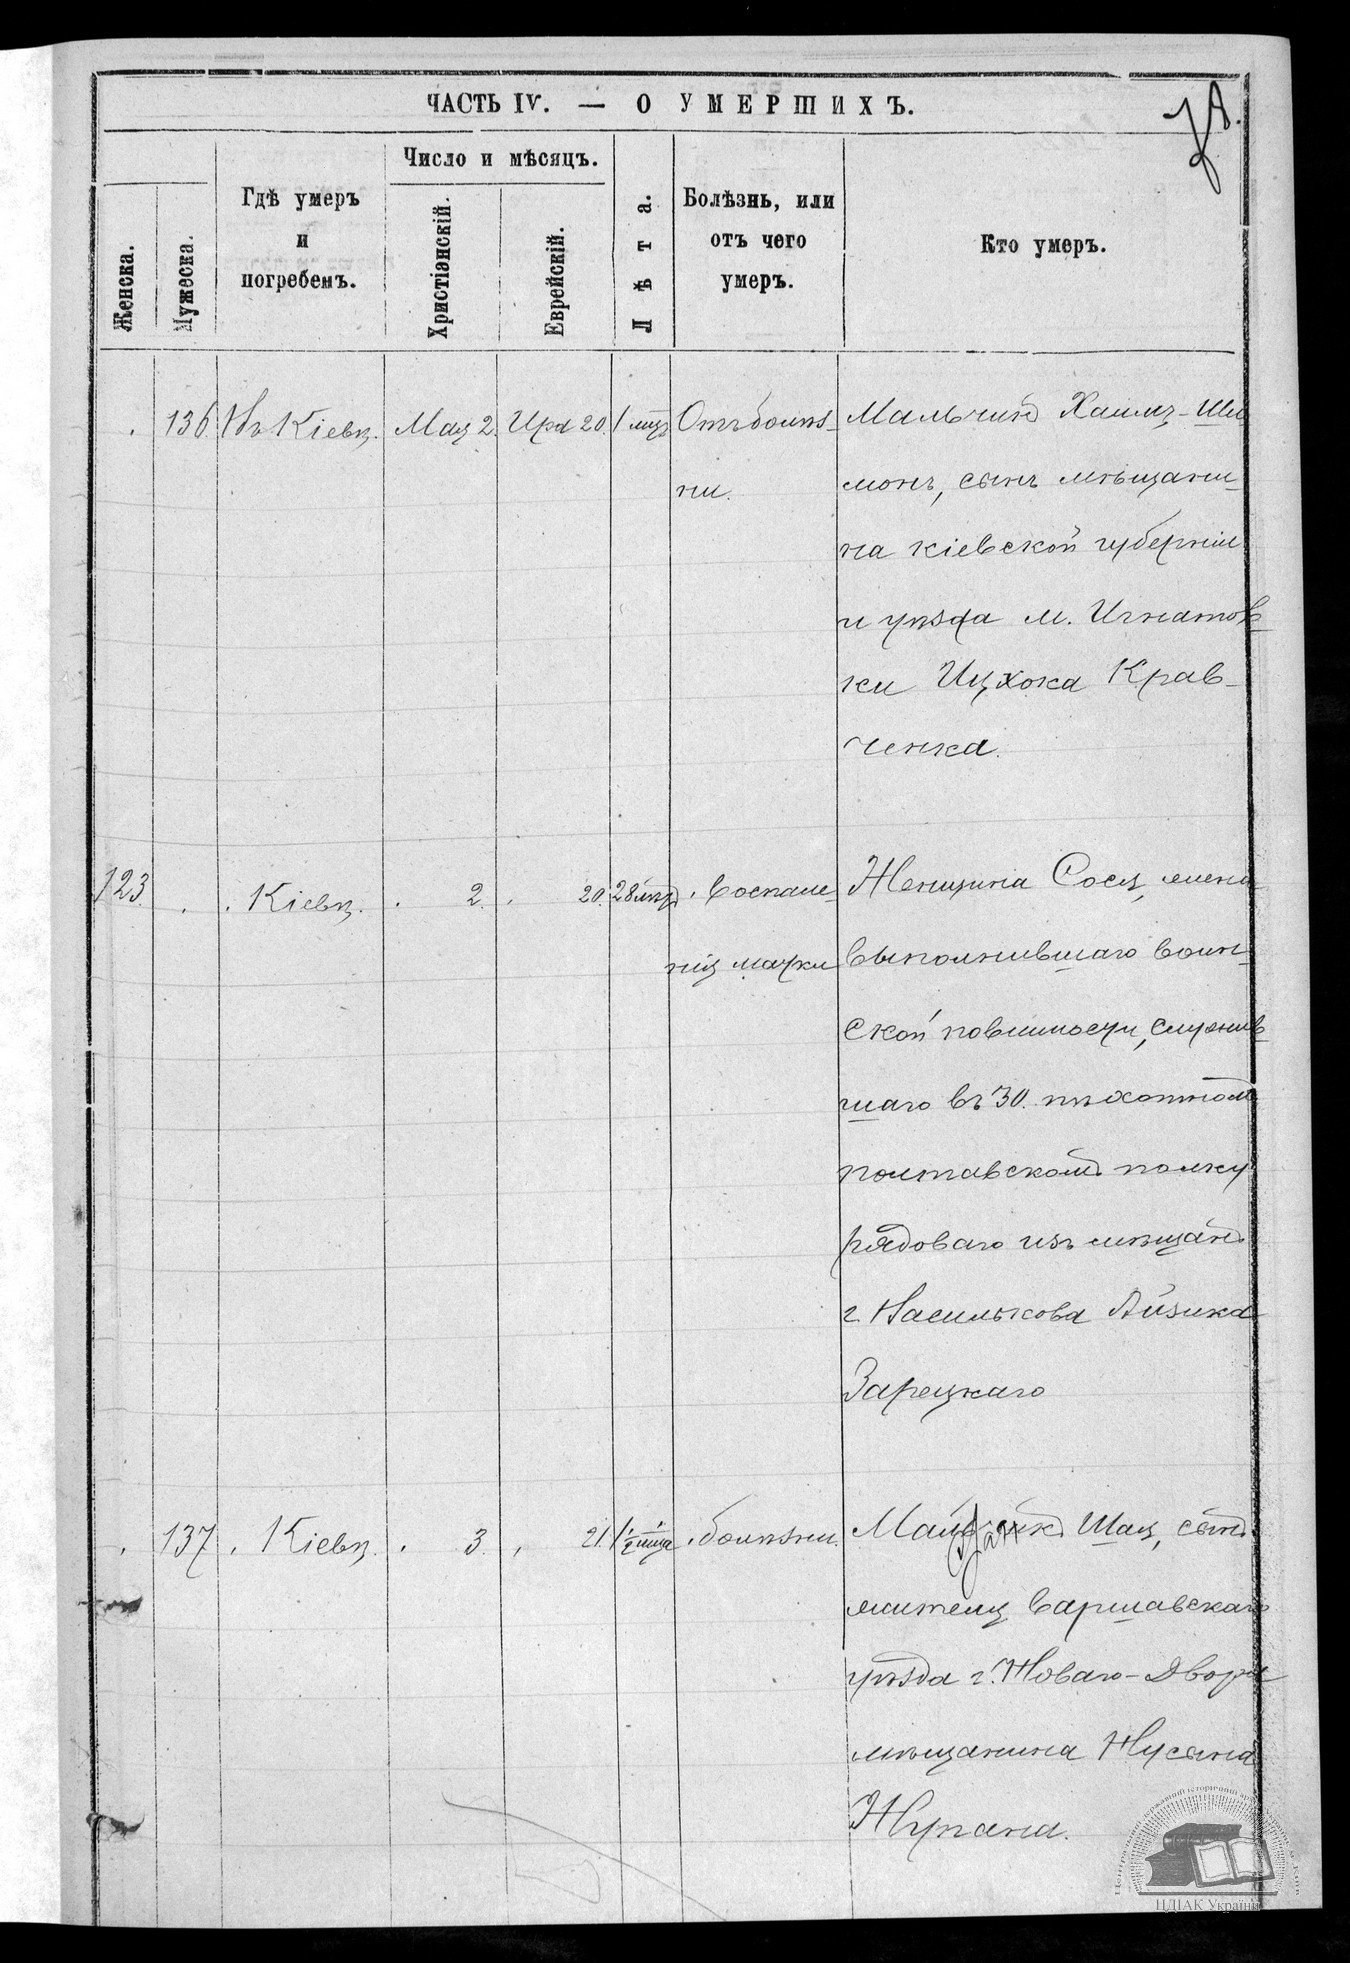 ЧАСТЬ IV. — О УМЕРШИХЪ.
Женска.
Мужеска.
Гдѣ умеръ
и
погребенъ.
Число и мѣсяцъ.
Христіянскій.
Еврейскій.
Лѣта.
Болѣзнь, или
отъ чего
умеръ.
Кто умеръ.
136 Въ Кіевѣ. Мая 2. Ира 20. 1 мѣц Отъ болѣз- Мальчикъ Хаимъ-Ши
ни. монъ, сынъ мѣщани-
на кіевской губерніи
и уѣзда м. Игнатов-
ки Ицхока Крав-
ченка.
123. Кіевѣ. 2. 20. 28 лѣтъ воспале- Женщина Сося, жена
нія матки выполнившаго воин-
ской повинности, служив-
шаго въ 30. пѣхотномъ
полтавскомъ полку
рядоваго изъ мѣщанъ
г. Василькова Айзика
Зарецкаго
137. Кіевѣ. 3. 21. 1 1/2 мца болѣзни. Мальчикъ Шая, сынъ
жителя Варшавскаго
уѣзда г. Новаго-Двора
мѣщанина Нусына
Жупана.
ЦДІАК України